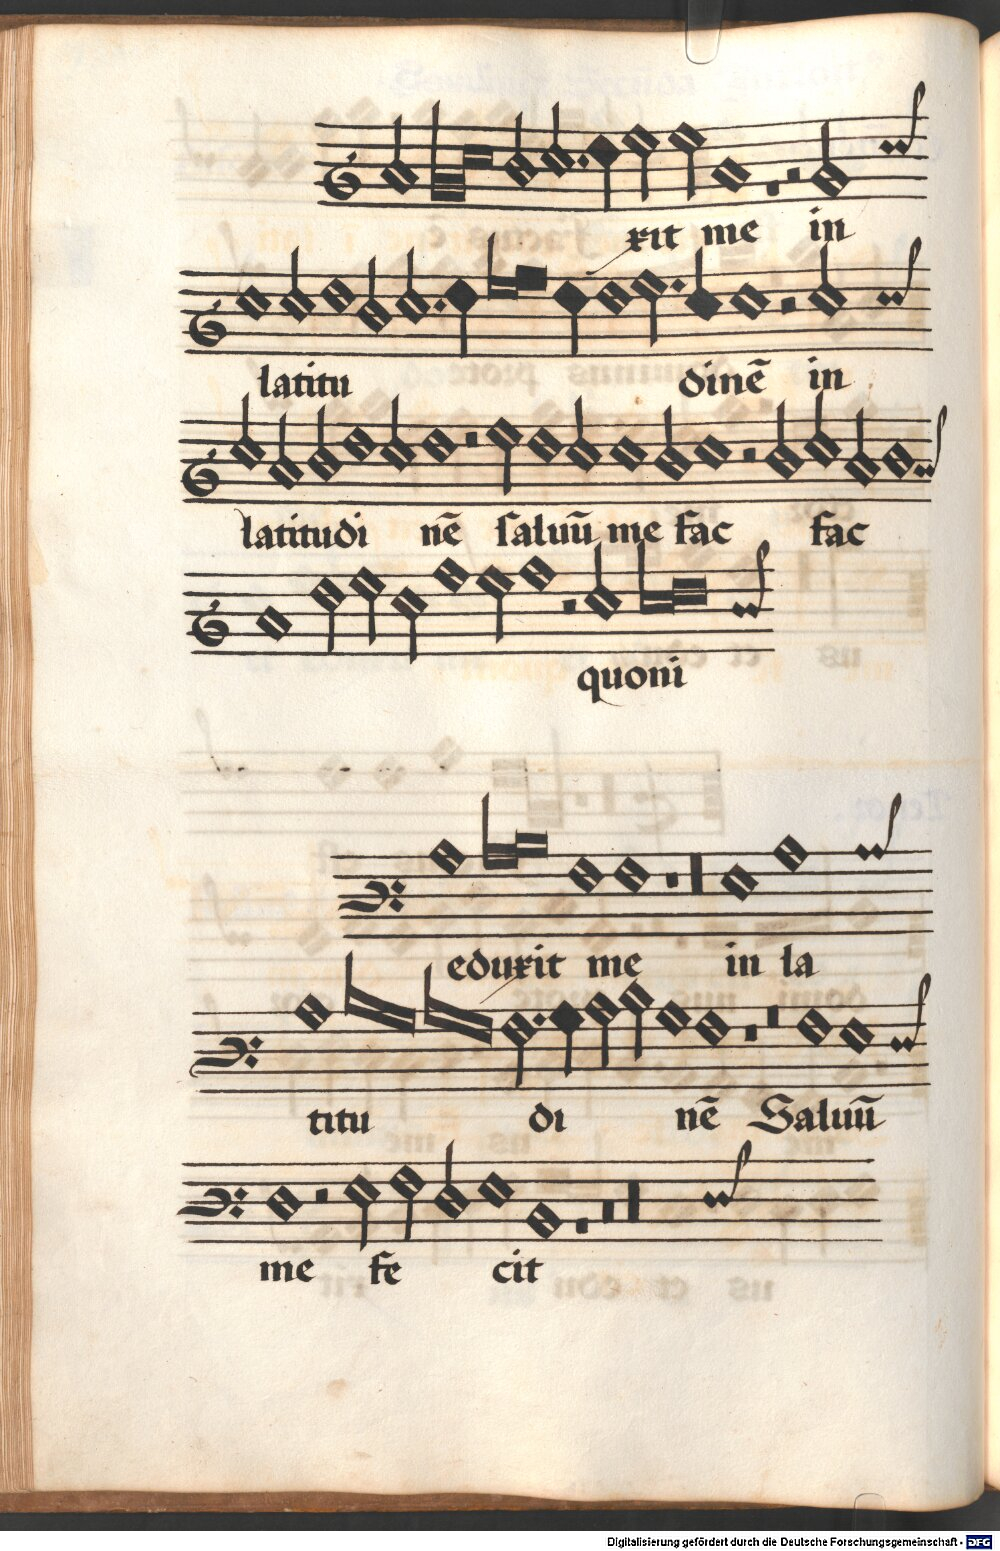 xit me in
latitu dinē in
latitudi nē saluū me fac fac
quoni
eduxit me in la
titu di nē Saluū
me fe cit
Digitalisierung gefördert durch die Deutsche Forschungsgemeinschaft - DFG